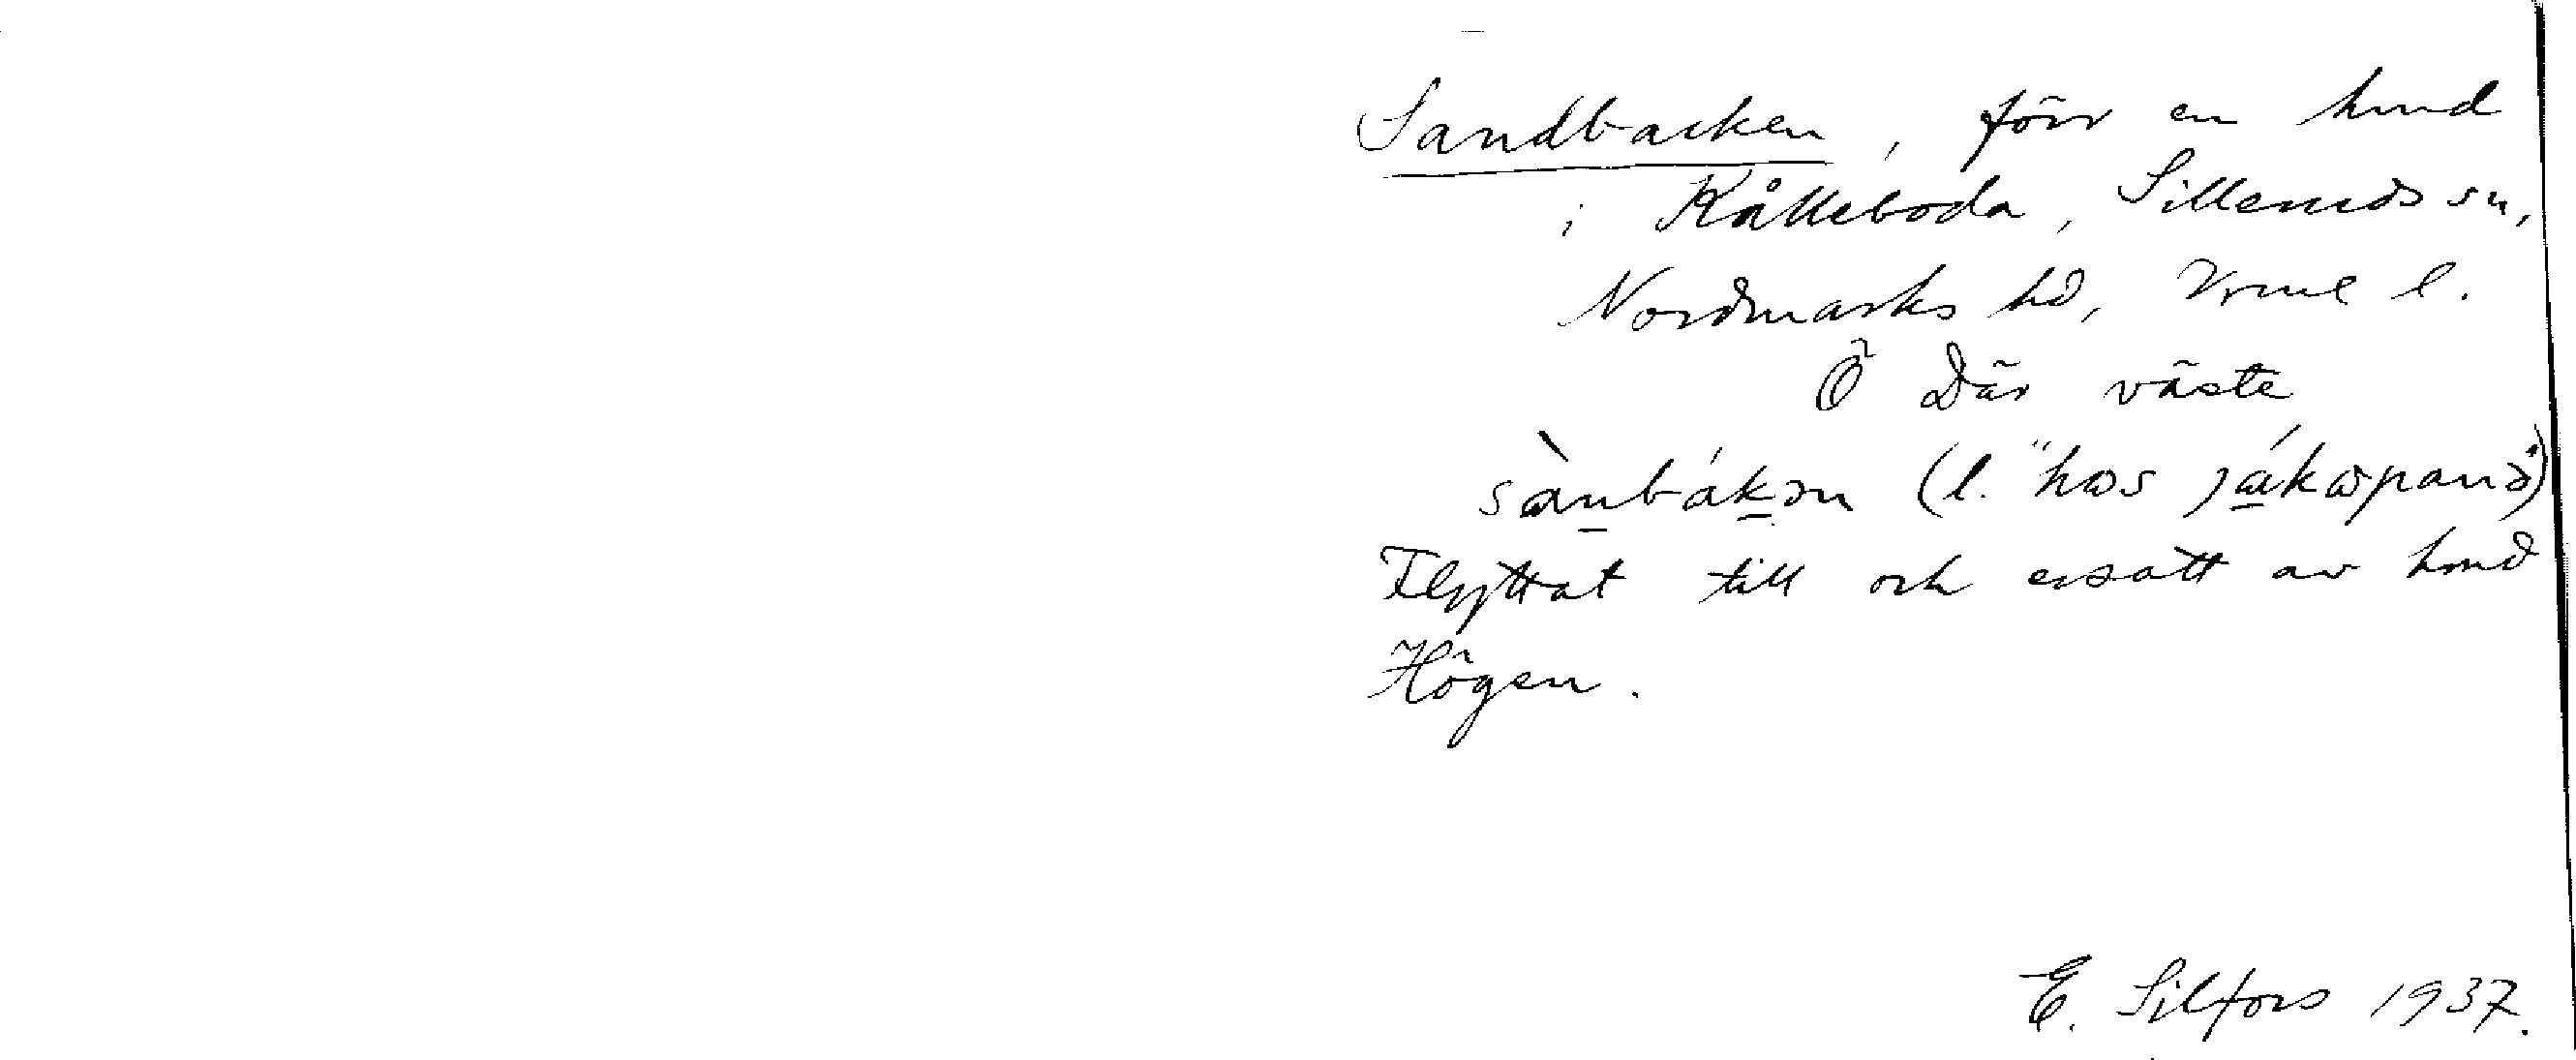 Sandbacken, förr en hmd
i Kålleboda, Silleruds sn,
Nordmarks hd, Vrml l.
Ö Där väste
sànbákən (l. "hos jákəpanå")
Flyttat till och ersatt av hmd
Högen.
E. Silfors 1937.